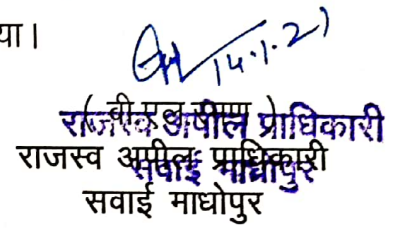 या।
14.1.21
राजस्व अपील प्राधिकारी
सवाई माधोपुर
राजस्व अपील प्राधिकारी
सवाई माधोपुर